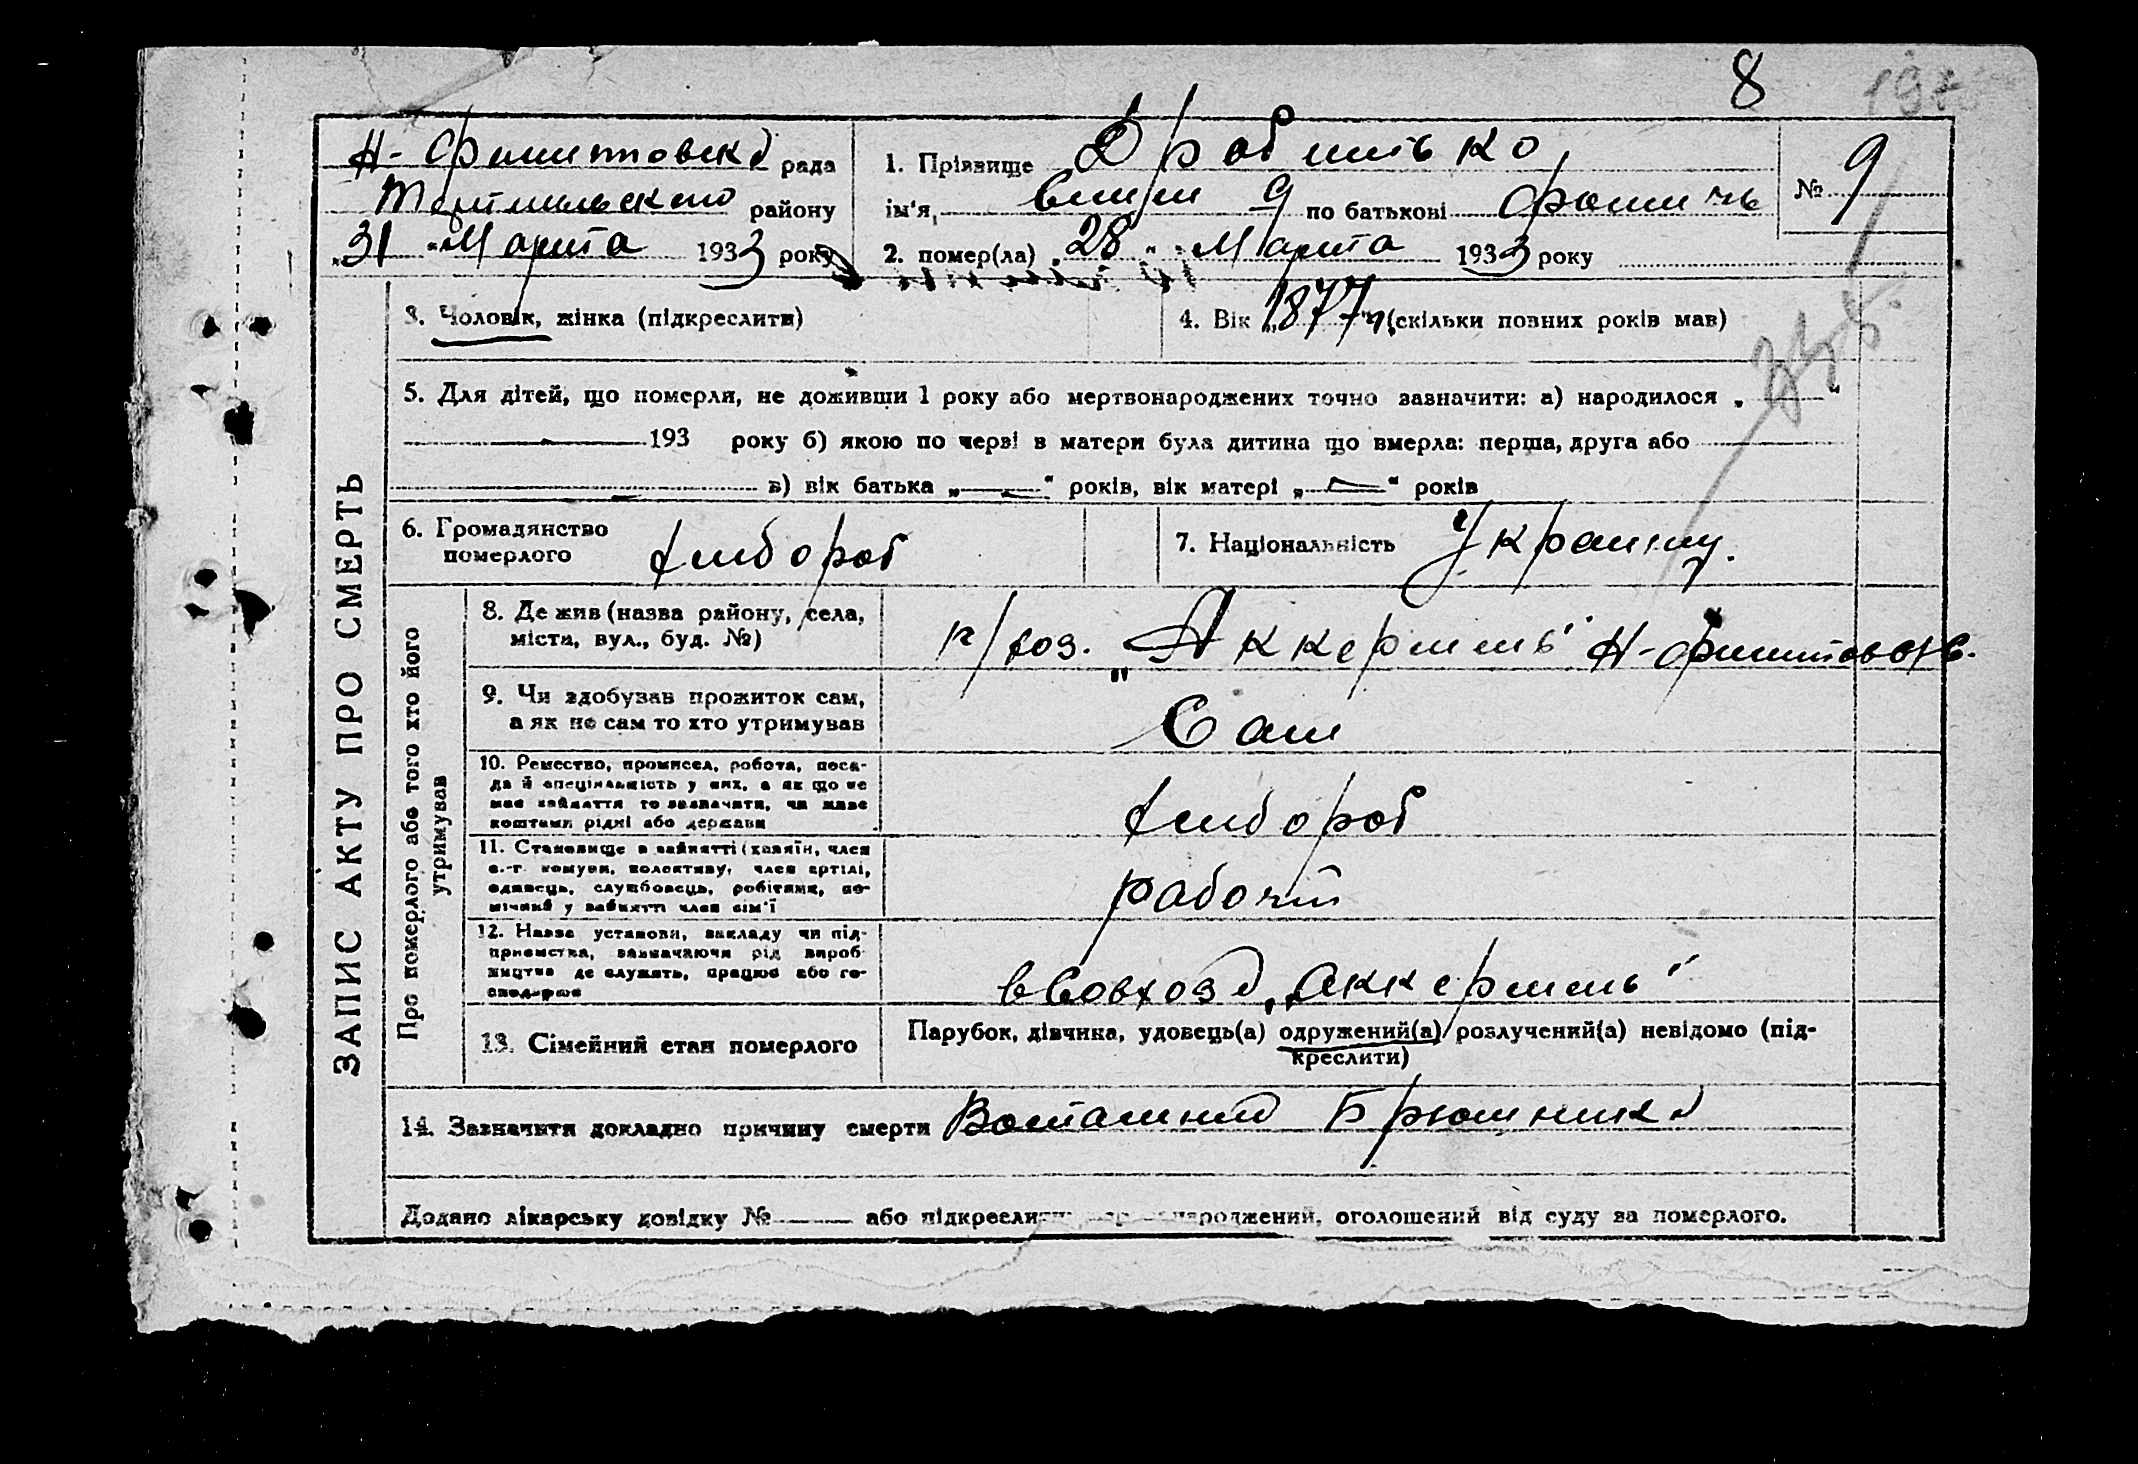 8
Н- Филиповска рада
Терпильского району
„31 „ Марта 1933 року
1. Прізвище Дробитько
ім'я, по батькові Фомич
№ 9
2. помер(ла) „28 „ Марта 1933 року
3. Чоловік, жінка (підкреслити)
4. Вік „1877г„ (скільки повних років мав)
5. Для дітей, що померли, не доживши 1 року або мертвонароджених точно зазначити: а) народилося „ “
193 року б) якою по черзі в матери була дитина що вмерла: перша, друга або
в) вік батька „ “ років, вік матері „ “ років
6. Громадянство
померлого хлибороб
7. Національність Украинц.
ЗАПИС АКТУ ПРО СМЕРТЬ
Про померлого або того хто його
утримував
8. Де жив (назва району, села,
міста, вул., буд. №)
к/хоз. „Аккермень“
9. Чи здобував прожиток сам,
а як не сам то хто утримував
Сам
10. Ремество, промисел, робота, поса-
да й спеціяльність у них, а як що не
має заняття то зазначити, чи живе
коштами рідні або держави
хлибороб
11. Становище в занятті (хазяїн, член
с.-г. комуни, колективу, член артілі,
одинець, службовець, робітник, по-
мічний у занятті член сім'ї
рабочий
12. Назва установи, закладу чи під-
приємства, зазначаючи рід вироб-
ництва де служить, працює або го-
сподарює
в Совхозе „Аккермень“
13. Сімейний стан померлого
Парубок, дівчина, удовець(а) одружений(а) розлучений(а) невідомо (під-
креслити)
14. Зазначити докладно причину смерти Воспаление Брюшника
Додано лікарську довідку № або підкреслити народжений, оголошений від суду за померлого.